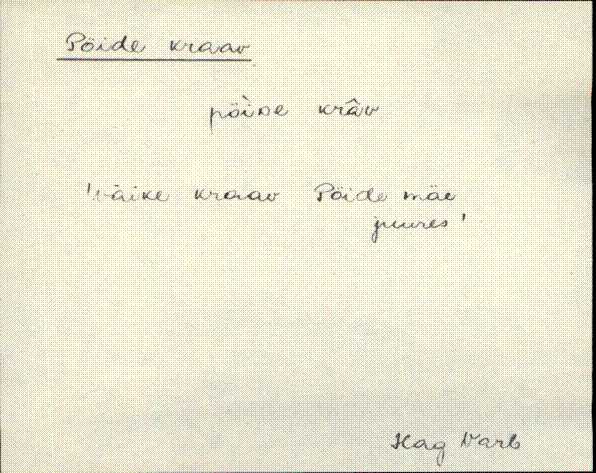 Põide kraav
põiDe krâv
'väike kraav Põide mäe
juures'
Hag Varb